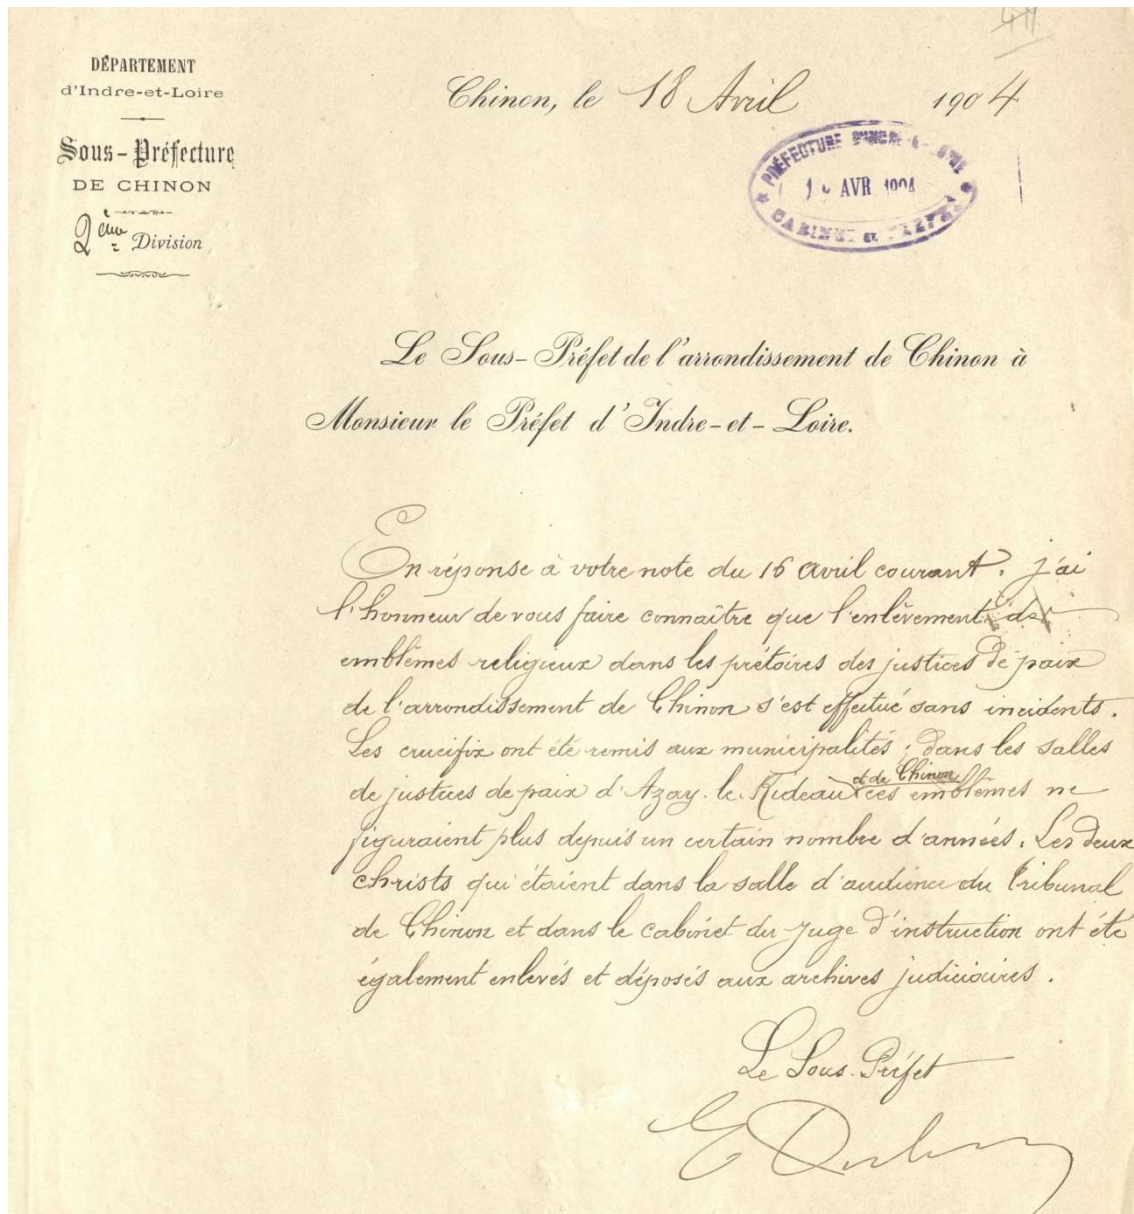 DÉPARTEMENT
d'Indre-et-Loire
Sous-Préfecture
DE CHINON
2ème Division
Chinon, le 18 Avril 1904
PRÉFECTURE D'INDRE-&-LOIRE
AVR 1904
CABINET du PRÉFET
Le Sous-Préfet de l'arrondissement de Chinon à
Monsieur le Préfet d'Indre-et-Loire.
En réponse à votre note du 16 avril courant, j'ai
l'honneur de vous faire connaître que l'enlèvement des
emblèmes religieux dans les prétoires des justices de paix
de l'arrondissement de Chinon s'est effectué sans incidents.
Les crucifix ont été remis aux municipalités ; dans les salles
de justices de paix d'Azay-le-Rideau et de Chinon ces emblèmes ne
figuraient plus depuis un certain nombre d'années. Les deux
christs qui étaient dans la salle d'audience du Tribunal
de Chinon et dans le cabinet du Juge d'instruction ont été
également enlevés et déposés aux archives judiciaires.
Le Sous-Préfet